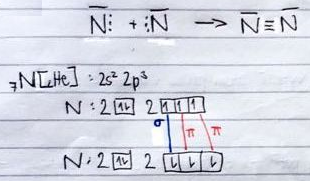 N̅⋮ + ⋮N̅ → N̅≡N̅
₇N[₂He] : 2s² 2p³
N : 2 [↑↓] 2 [↑][↑][↑]
σ π π
N : 2 [↑↓] 2 [↓][↓][↓]